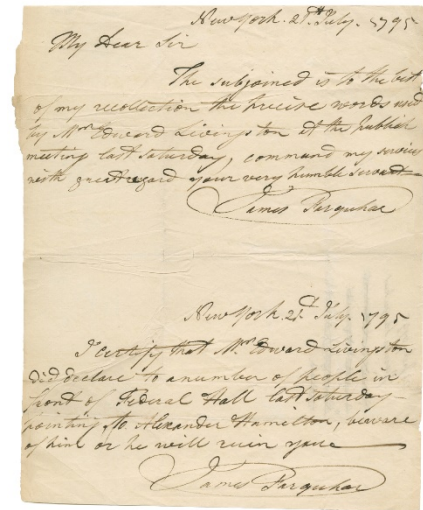 New York. 21st July. 1795
My Dear Sir
The subjoined is to the best
of my recollection the precise words used
by Mr. Edward Livingston at the publick
meeting last Saturday, command my services
with great regard your very humble servant
James Farquhar
New York. 21st July. 1795
I certify that Mr. Edward Livingston
did declare to a number of people in
front of Federal Hall last Saturday
pointing to Alexander Hamilton, beware
of him or he will ruin you
James Farquhar